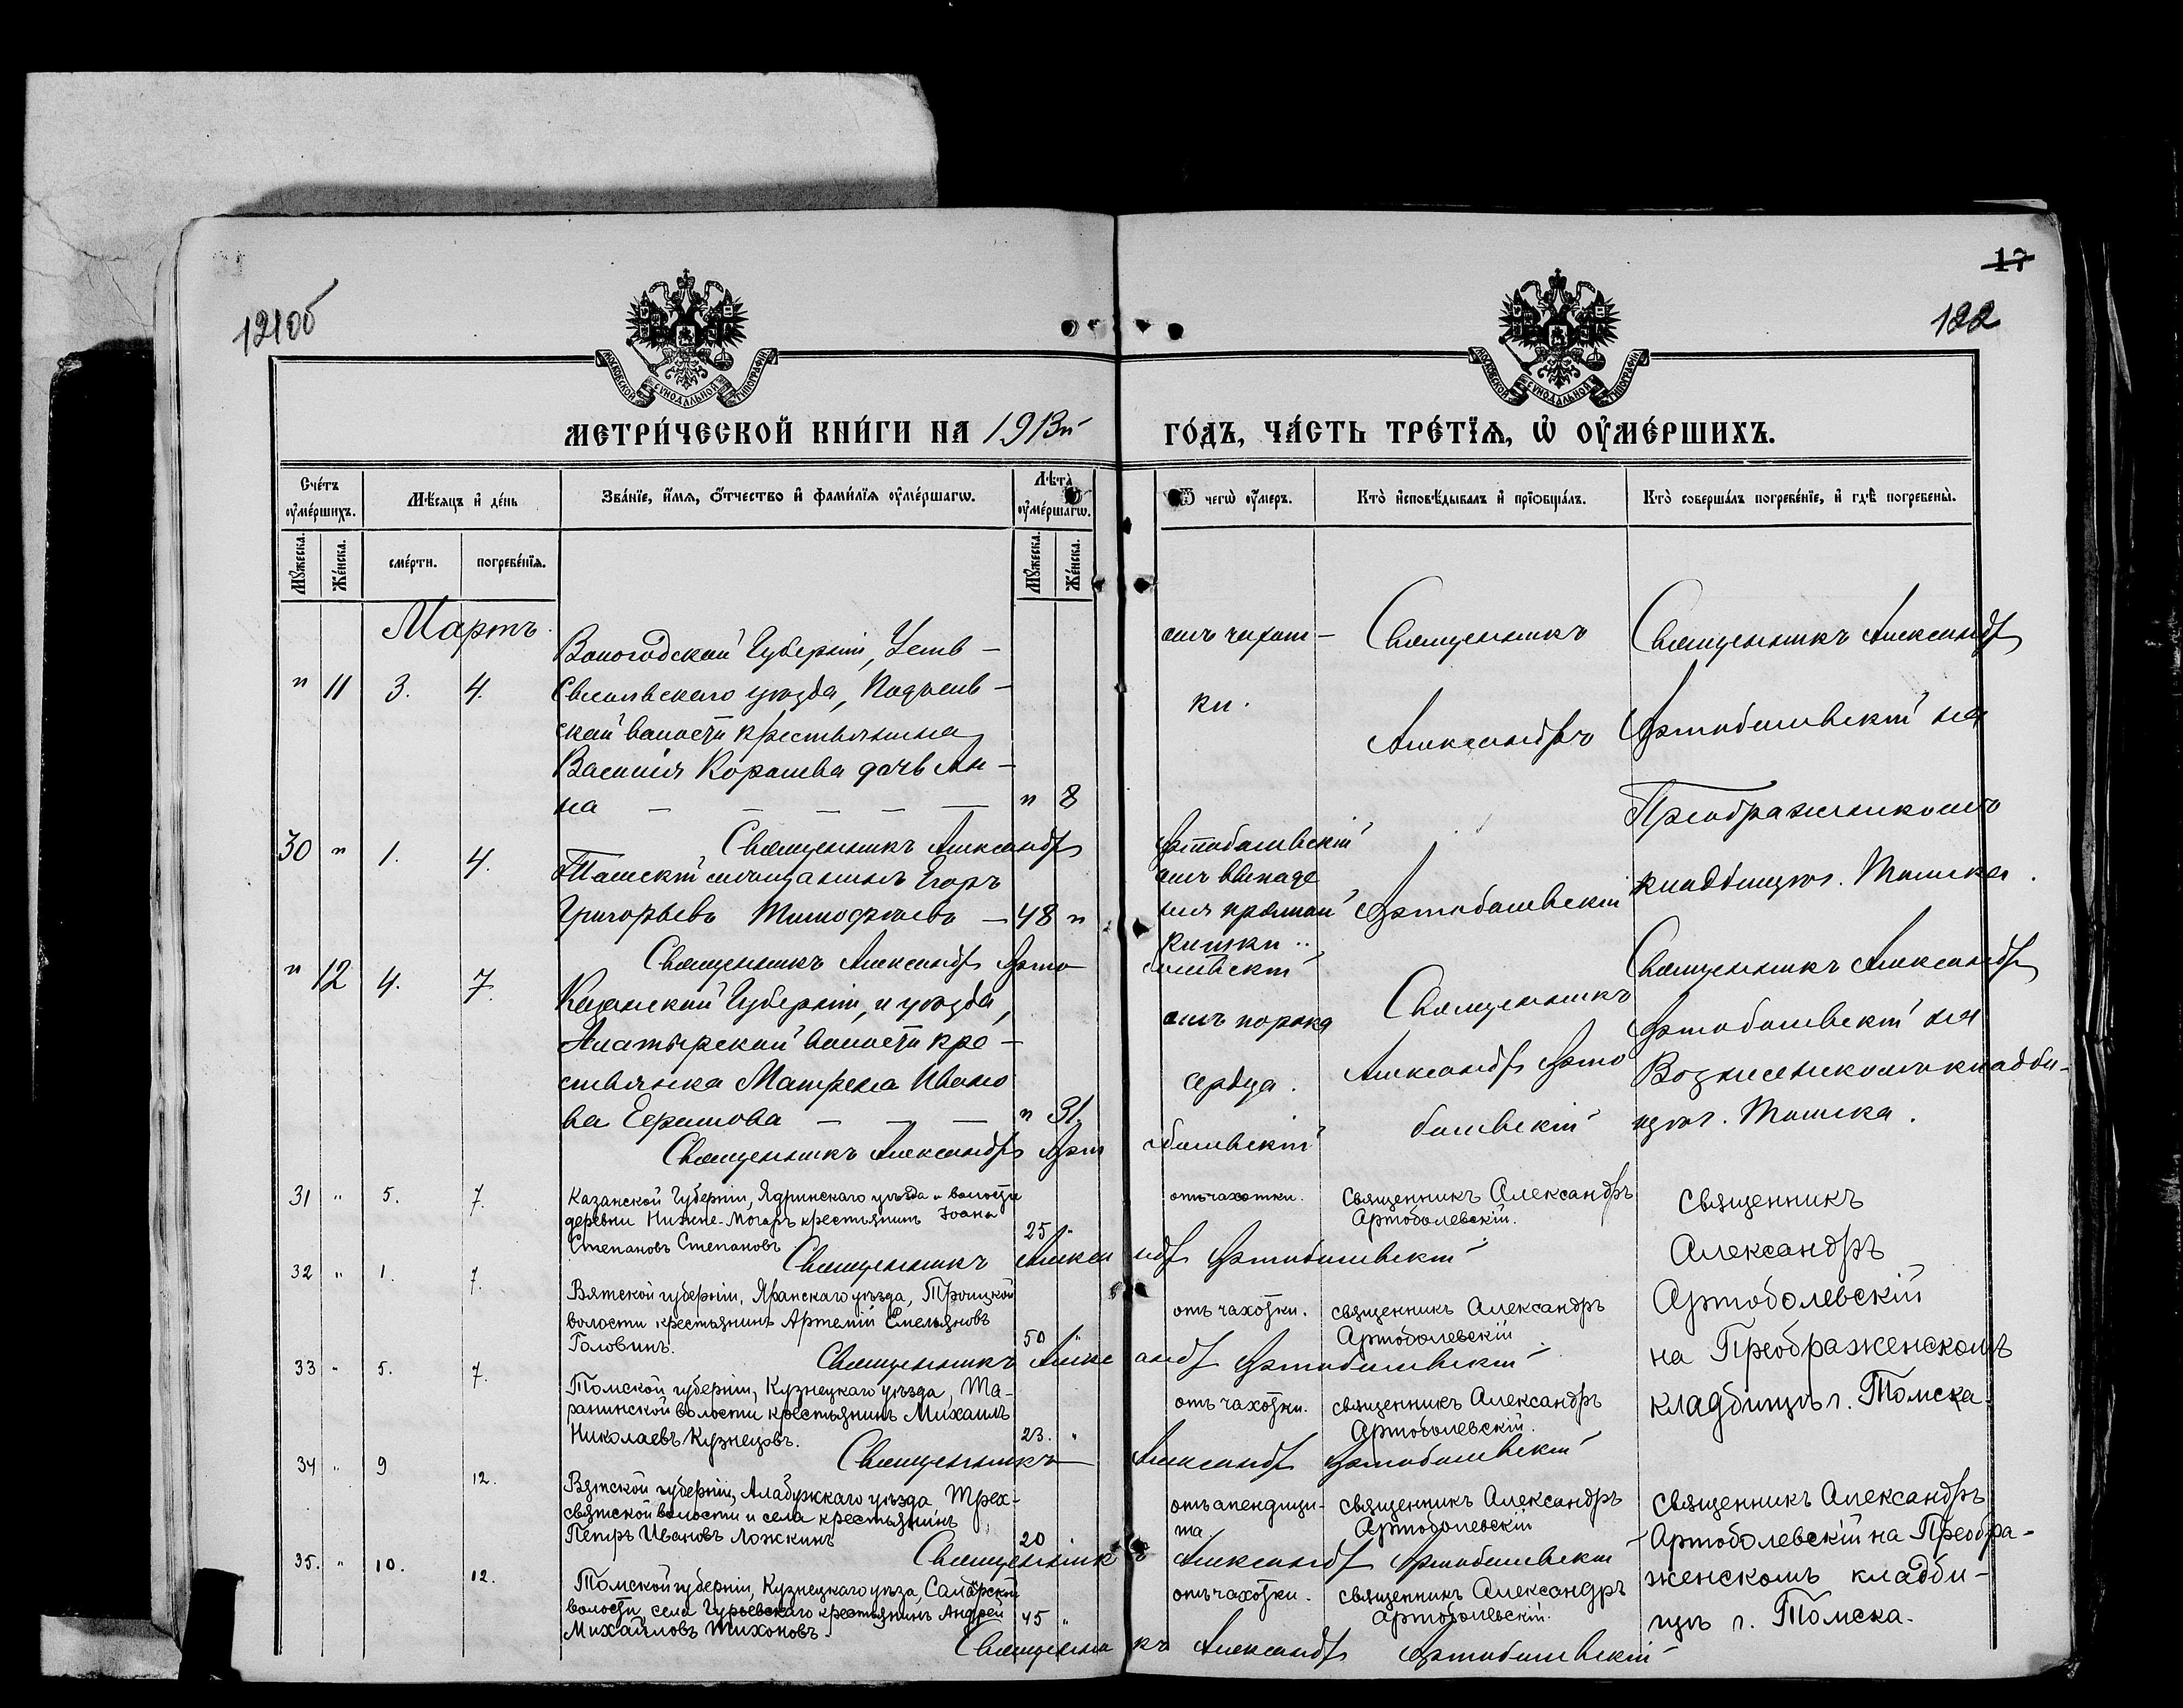 121об
17
122
МОСКОВСКОЙ СУНОДАЛЬНОЙ ТИПОГРАФІИ
МОСКОВСКОЙ СУНОДАЛЬНОЙ ТИПОГРАФІИ
МЕТРИ́ЧЕСКОЙ КНИ́ГИ НА 1913й
ГО́ДЪ, ЧА́СТЬ ТРЕ́ТІЯ, Ѡ ОУМЕ́РШИХЪ.
Сче́тъ оуме́ршихъ.
Мѣ́сяцъ и де́нь
Зва́ніе, и́мя, о́тчество и фами́лія оуме́ршагѡ.
Лѣта̀ оуме́ршагѡ.
Ѿ чегѡ̀ оу́меръ.
Кто̀ исповѣ́дывалъ и пріобща́лъ.
Кто̀ соверша́лъ погребе́ніе, и гдѣ̀ погребены̀.
Му́жеска.
Же́нска.
сме́рти.
погребе́нія.
Му́жеска.
Же́нска.
Мартъ.
Вологодской Губерніи, Усть-
" 11 3. 4. Сысольскаго уѣзда, Подъель-
ской волости крестьянина
Василія Королева дочь Ан-
на — — — — — " 8
отъ чахот-
ки.
Священникъ
Александръ
Артоболевскій
Священникъ Александръ
Артоболевскій на
Преображенскомъ
кладбищѣ г. Томска.
Священникъ Александръ Артоболевскій
30 " 1. 4. Томскій мѣщанинъ Егоръ
Григорьевъ Тимофѣевъ — 48 "
отъ выпаде
нія прямой
кишки..
Священникъ Александръ Артоболевскій
" 12 4. 7. Казанской Губерніи, и уѣзда,
Алатырской волости кре-
стьянка Матрена Ивано
ва Ефимова — — — " 31
отъ порока
сердца.
Священникъ
Александръ Арто
болевскій
Священникъ Александръ
Артоболевскій на
Вознесенскомъ кладби-
щѣ г. Томска.
Священникъ Александръ Артоболевскій
31 " 5. 7. Казанской Губерніи, Ядринскаго уѣзда и волости
деревни Нижне-Могаръ крестьянинъ Іоанн
Степановъ Степановъ 25 "
отъ чахотки.
Священникъ Александръ
Артоболевскій.
Священникъ
Александръ
Артоболевскій
на Преображенскомъ
кладбищѣ г. Томска.
Священникъ Александръ Артоболевскій
32 " 1. 7. Вятской губерніи, Яранскаго уѣзда, Троицкой
волости крестьянинъ Артемій Емельяновъ
Головинъ. 50 "
отъ чахотки.
священникъ Александръ
Артоболевскій
Священникъ Александръ Артоболевскій
33 " 5. 7. Томской губерніи, Кузнецкаго уѣзда, Та-
ранинской волости крестьянинъ Михаилъ
Николаевъ Кузнецовъ. 23. "
отъ чахотки.
священникъ Александръ
Артоболевскій.
Священникъ Александръ Артоболевскій
34 " 9 12. Вятской губерніи, Алабужкаго уѣзда, Трех-
святской волости и села крестьянинъ
Петръ Ивановъ Ложкинъ 20
отъ апендици-
та.
священникъ Александръ
Артоболевскій
священникъ Александръ
Артоболевскій на Преобра-
женскомъ кладби-
щѣ г. Томска.
Священникъ Александръ Артоболевскій
35. " 10. 12. Томской губерніи, Кузнецкаго уѣза,
волости, села Гурьевскаго крестьянинъ Андрей
Михайловъ Тихоновъ. 45 "
отъ чахотки.
священникъ Александръ
Артоболевскій.
Священникъ Александръ Артоболевскій